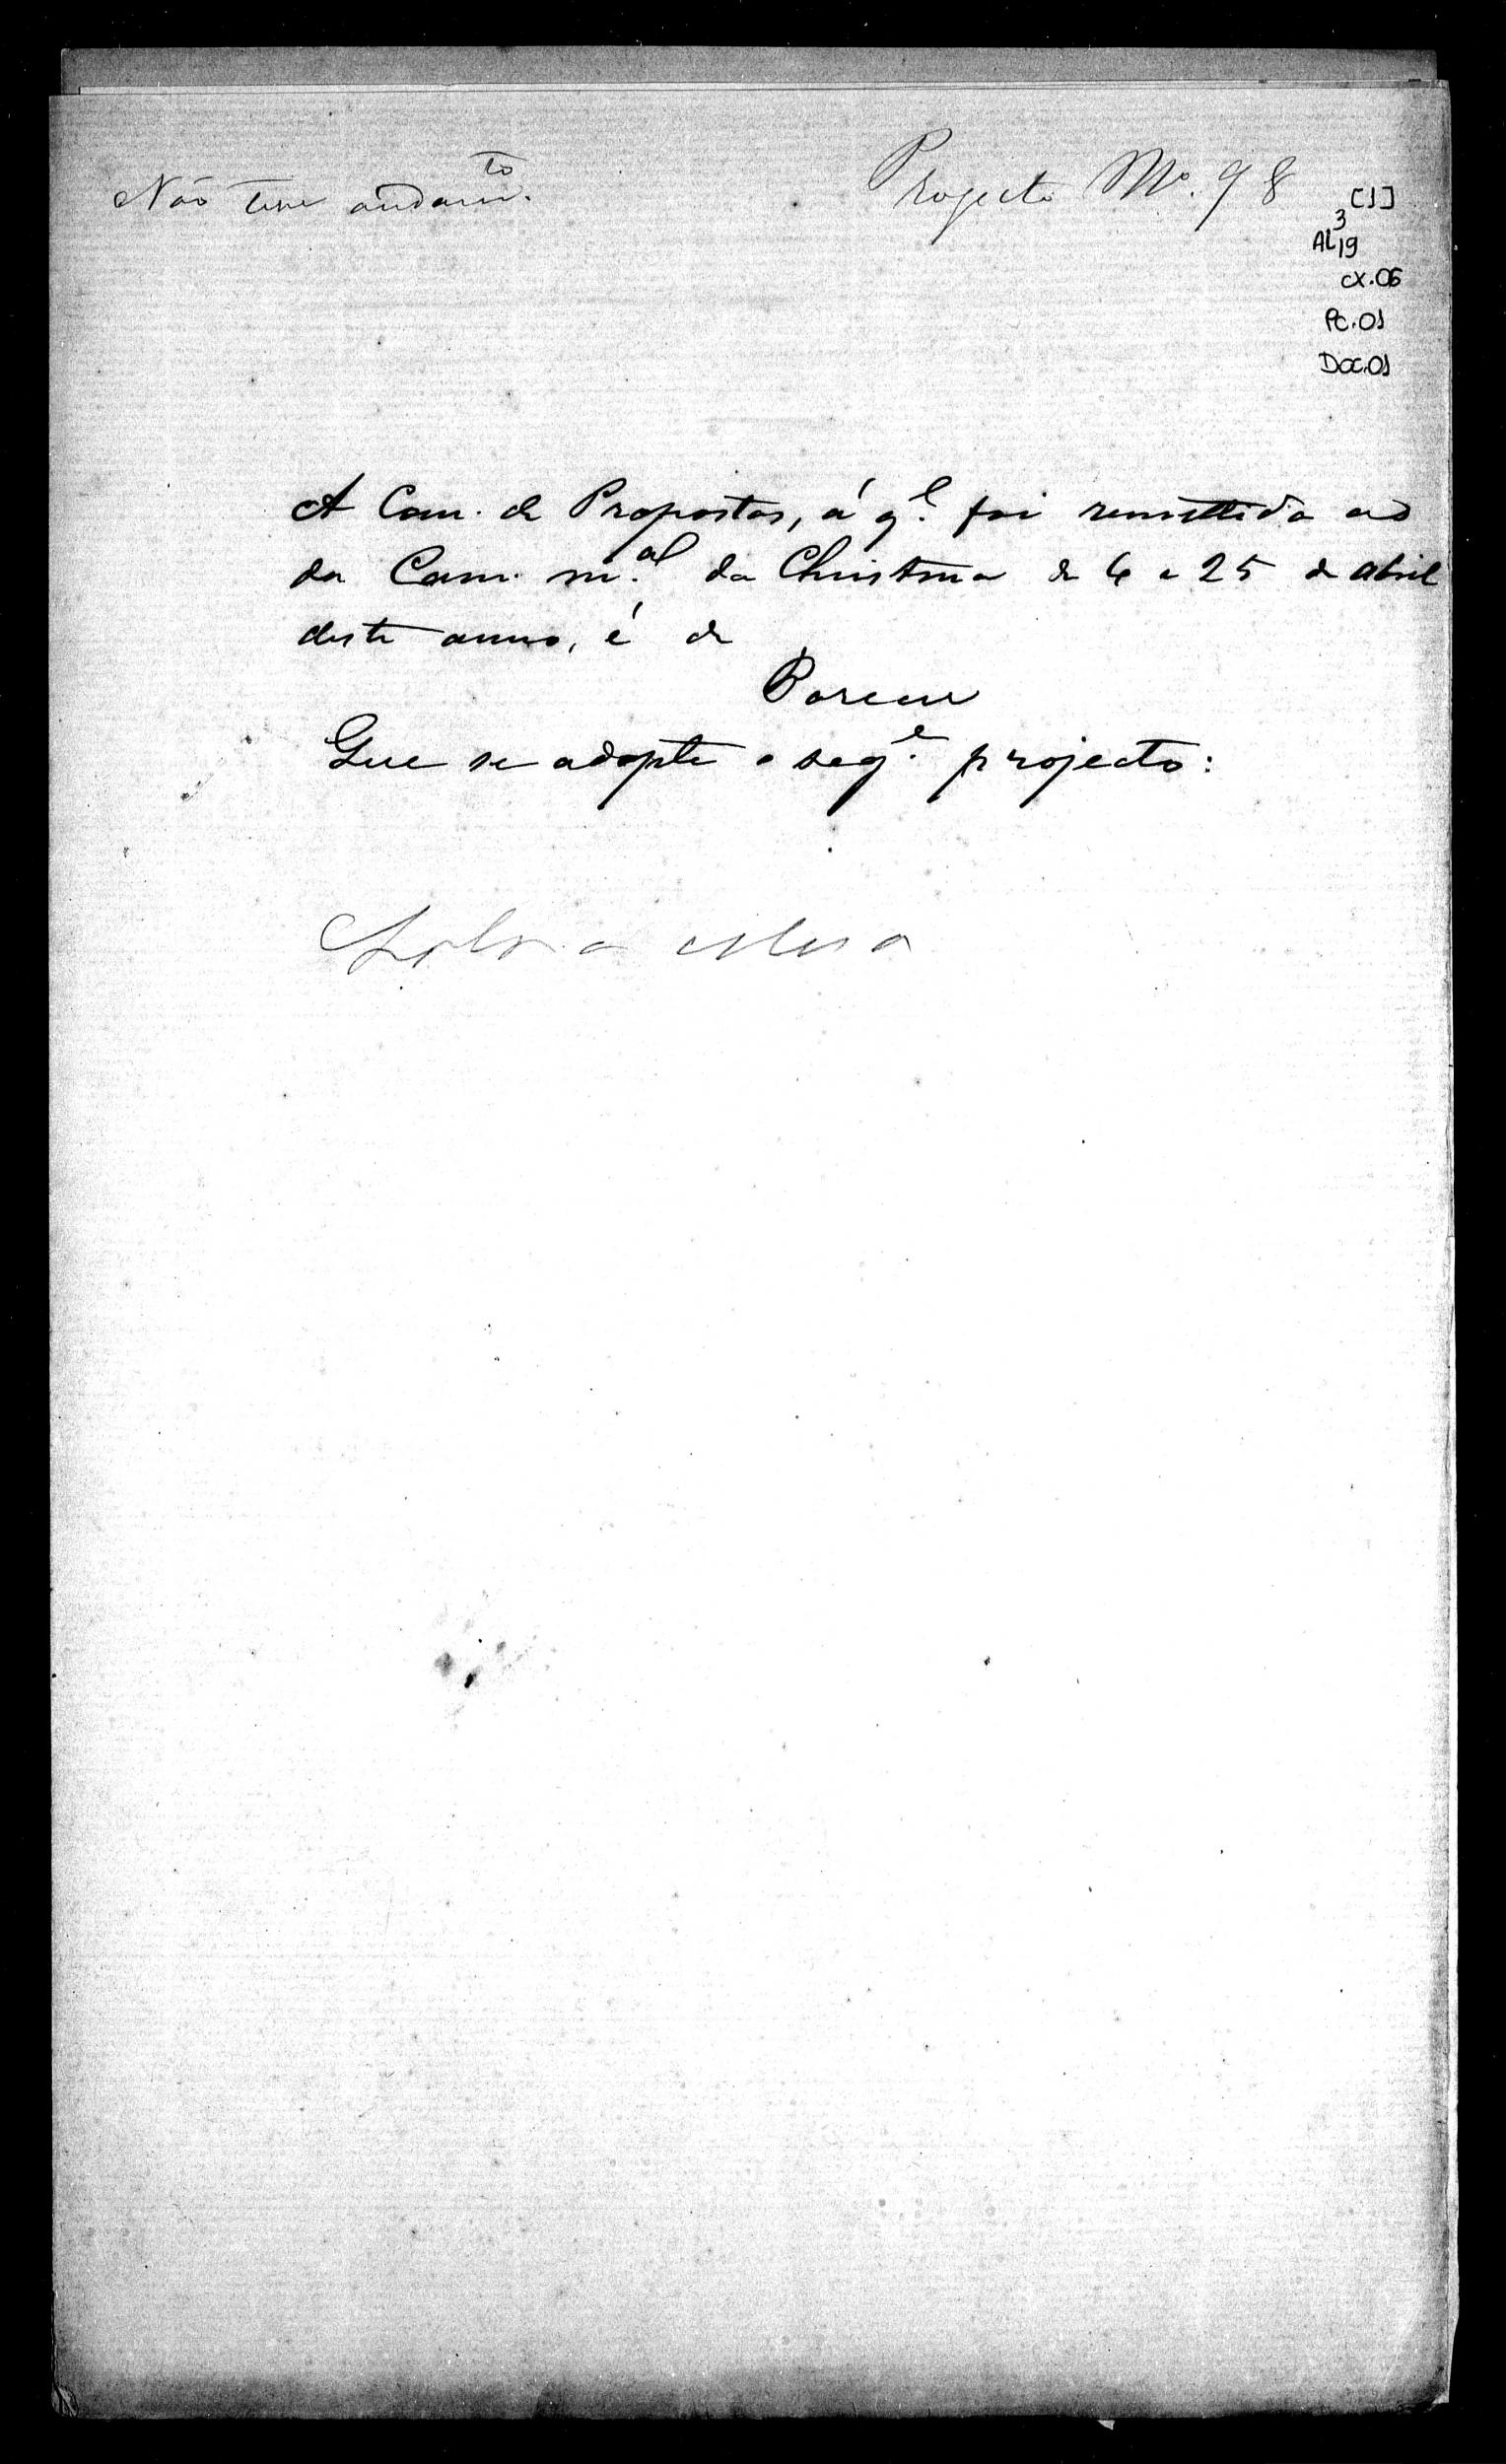 Não teve andam.to
Projecto Nº. 98
[1]
AL 3
19
cx.06
Pc.01
Doc.01
A Com. de Propostas, á q.l foi remettida as
da Cam. m.al da Christina de 6 e 25 de abril
deste anno, é de
Parecer
Que se adopte o seg.e projecto: